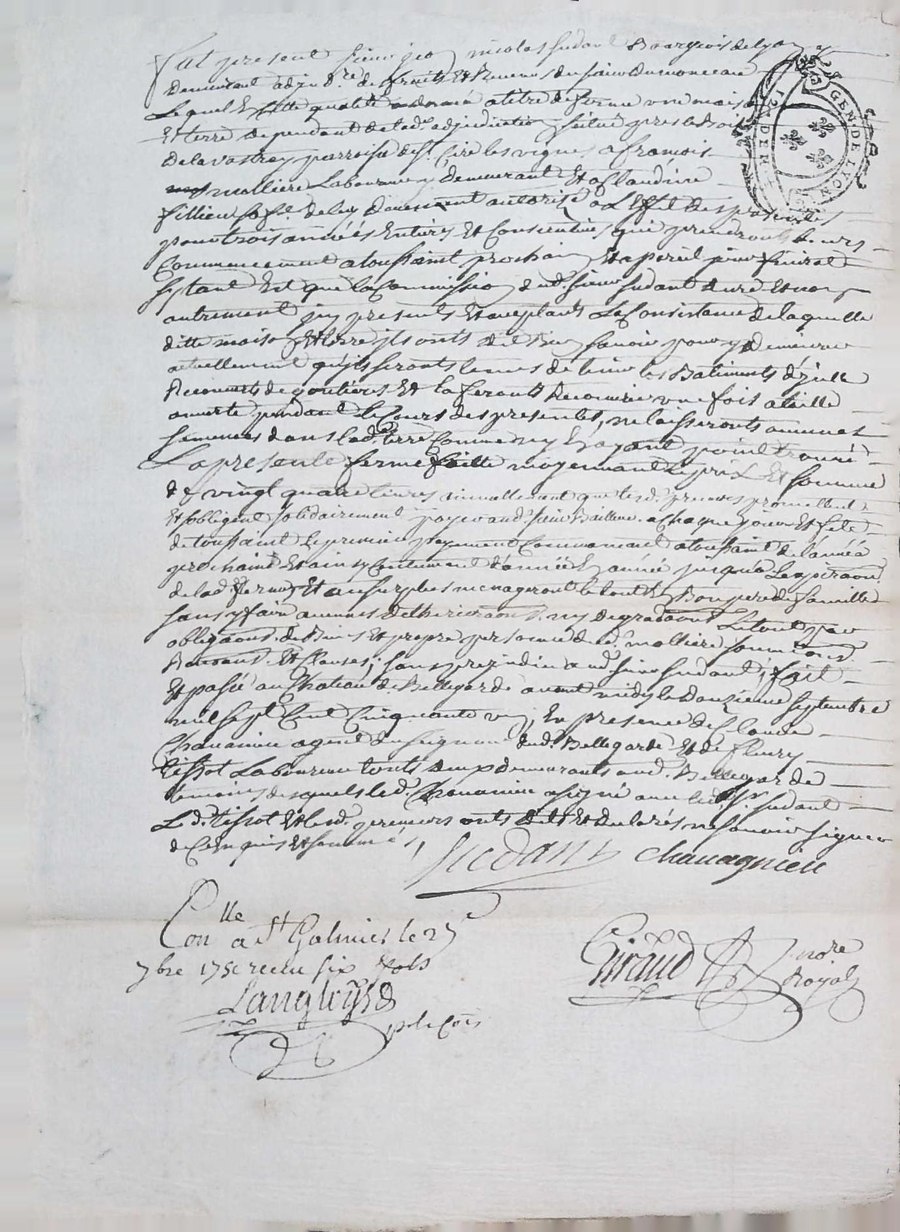 fut present sieur nicolas sudant Bourgeois de Lyon
Demeurant adjud.re de fruits Et Revenus du
Lequel En cette qualité a donné a titre de ferme une maison
Et terre dependant de lad.e adjudication située pres le Bois
Delavastrey parroisse de S.t les vignes a francois
molliere Laboureur y demeurant Et a Claudine
fillieu sa f.e de luy Duement autorisé a L'Effet des presentes
pour trois années Entieres Et Consecutives qui prendront leurs
Commencement a toussaint prochain Et a pareil jour finiront
sy tant Est que la Commission dud. sieur sudant dure Et non
autrement present Et acceptant La Consistance de laquelle
ditte maison Et terre ils ont dit Bien sçavoir pour y demeurer
actuellement qu'ils seront tenus de tenir les Batiments d'ycelle
Recouverts de goutieres Et la feront Recouvrir une fois a taille
ouverte pendant le Cours des presentes, ne laisseront aucunes
semences dans lad.e terre Comme ny En ayant point trouvé
La presente ferme faitte moyennant le prix Et somme
de vingt quatre livres annuellement que lesd. preneurs promettent
Et s'obligent solidairement payer aud. sieur Bailleur a Chaque jour Et fete
de toussaint Le premier payement Commencant a toussaint de l'année
prochaine Et ainsy Continuent d'année En année jusqu'a L'expiration
de lad.e ferme Et au surplus menageront le tout En Bon pere de famille
sans y faire aucunes deteriorations ny degradations Le tout par
obligations de Biens Et propre personne dud. molliere soumissions
Renons. Et Clauses; sans prejudice aud. sieur sudant, fait
Et passé au Chateau de Bellegarde avant midy le Douzieme septembre
mil sept Cent Cinquante En presence de Claude
Chavanieu agent du seigneur dud. Bellegarde Et de fleury
tissot Laboureur touts deux demeurants aud. Bellegarde
temoins desquels led. Chavanieu a signé avec led. S.r sudant
Led. tissot Et lesd. preneurs ont dit Et declarés ne sçavoir signer
de Ce enquis Et sommés,
Sudant chavagnieu
Con.lle a S.t Galmier le 27
7bre 175 receu six sols
Langloys
Giraud no.re
Royal
GEN. DE LYON
DEN